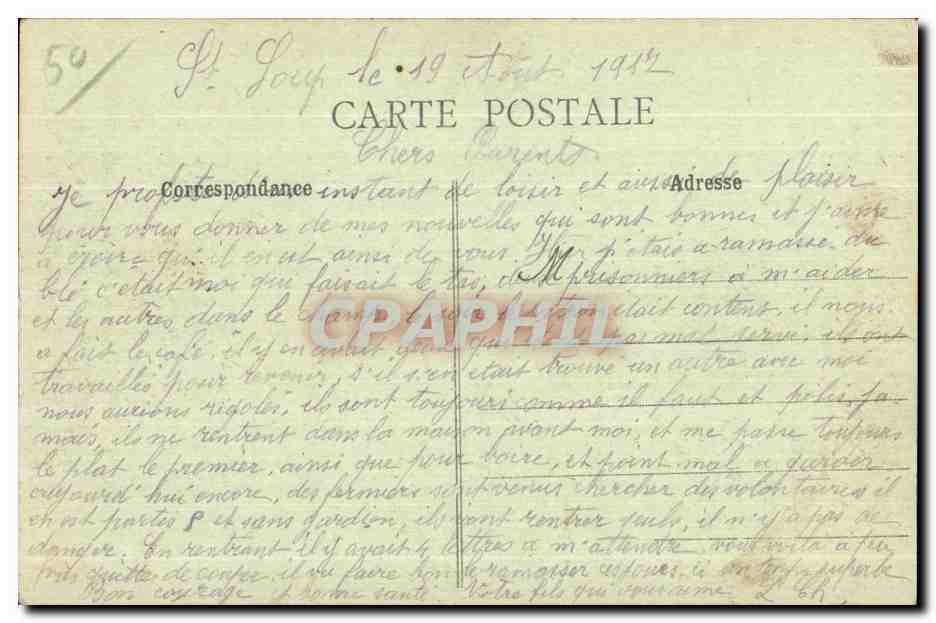 50
St Loup le 19 Aout 1917
CARTE POSTALE
Chers Parents
Correspondance
Adresse
je profite d'un instant de loisir et aussi de plaisir
pour vous donner de mes nouvelles qui sont bonnes et j'aime
a croire qu'il en est ainsi de vous. Hier j'étais a ramasse du
M
blé c'était moi qui faisait le tas, des prisonniers à m'aider
et les autres dans le champ le soir le patron était content, il nous
CPAPHIL
a fait le café, il y en avait mal servi, ils ont
travaillés pour revenir, s'il s'en était trouvé un autre avec moi
nous aurions rigolés, ils sont toujours comme il faut et polis, ja-
mais, ils ne rentrent dans la maison avant moi, et me passe toujours
le plat le premier, ainsi que pour boire, et point mal a garder
aujourd'hui encore, des fermiers sont venus chercher des volontaires il
en est partis 8 et sans gardien, ils vont rentrer seuls, il n'y a pas de
danger. En rentrant il y avait 4 lettres a m'attendre, vous voila à peu
près quitte de couper, il va faire bon ramasser ces jours, superbe
Bon courage et bonne santé. Votre fils qui vous aime